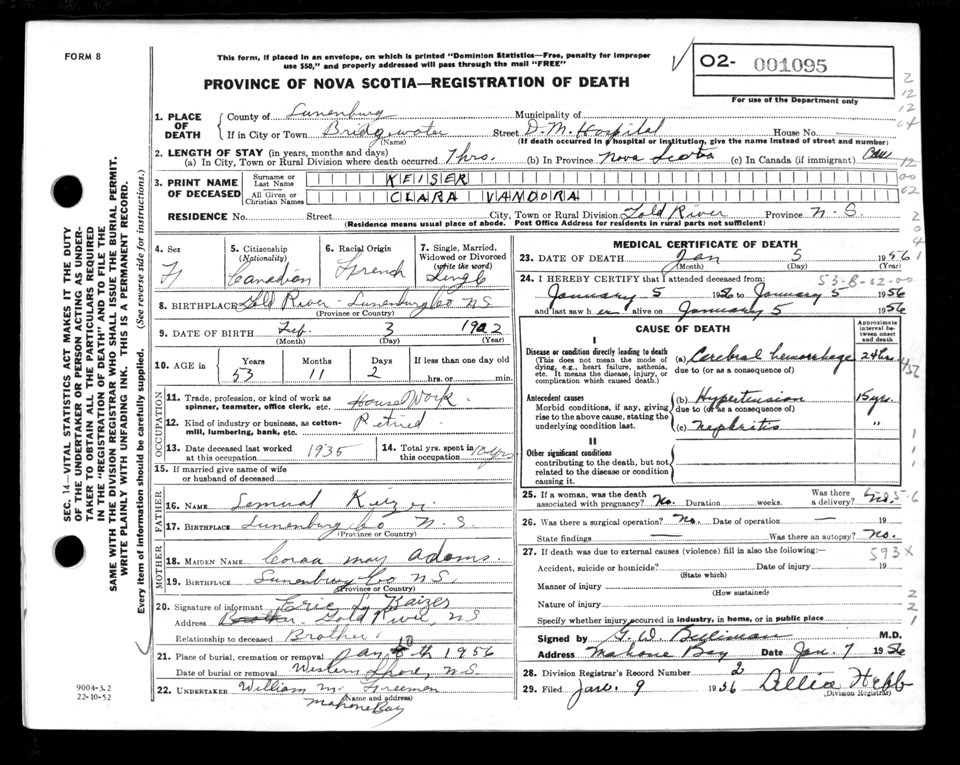 FORM 8
This form, if placed in an envelope, on which is printed "Dominion Statistics—Free, penalty for improper
use $50," and properly addressed will pass through the mail "FREE"
PROVINCE OF NOVA SCOTIA—REGISTRATION OF DEATH
02- 001095
For use of the Department only
1. PLACE OF DEATH
County of Lunenburg Municipality of
If in City or Town Bridgewater Street D.M. Hospital House No. —
(Name) (If death occurred in hospital or institution, give the name instead of street and number)
2. LENGTH OF STAY (in years, months and days)
(a) In City, Town or Rural Division where death occurred 7 hrs. (b) In Province Nova Scotia (c) In Canada (if immigrant)
3. PRINT NAME OF DECEASED
Surname or Last Name KEISER
All Given or Christian Names CLARA VANDORA
RESIDENCE No. Street City, Town or Rural Division Gold River Province N.S.
(Residence means usual place of abode. Post Office Address for residents in rural parts not sufficient)
4. Sex F
5. Citizenship (Nationality) Canadian
6. Racial Origin French
7. Single, Married, Widowed or Divorced (write the word) Single
8. BIRTHPLACE Gold River - Lunenburg Co N.S
(Province or Country)
9. DATE OF BIRTH Feb. 3 1902
(Month) (Day) (Year)
10. AGE in Years 53 Months 11 Days 2 If less than one day old
hrs. or min.
OCCUPATION
11. Trade, profession, or kind of work as spinner, teamster, office clerk, etc. House Work.
12. Kind of industry or business, as cotton-mill, lumbering, bank, etc. Retired
13. Date deceased last worked at this occupation 1935
14. Total yrs. spent in this occupation 10 yrs
15. If married give name of wife or husband of deceased
FATHER
16. NAME Lemual
17. BIRTHPLACE Lunenburg Co N.S.
(Province or Country)
MOTHER
18. MAIDEN NAME Coraa may Adams.
19. BIRTHPLACE Lunenburg Co N.S.
(Province or Country)
20. Signature of informant Eric L. Kaizer
Address Brother Gold River, N.S
Relationship to deceased Brother.
21. Place of burial, cremation or removal Jan 8 th 1956
10
Date of burial or removal Western Shore, N.S.
22. UNDERTAKER William M. Freeman
(Name and address)
Mahone Bay
MEDICAL CERTIFICATE OF DEATH
23. DATE OF DEATH Jan 5 1956
(Month) (Day) (Year)
24. I HEREBY CERTIFY that I attended deceased from: 53-B-02-00
January 5 1956 to January 5 1956
and last saw her alive on January 5 1956
CAUSE OF DEATH
Approximate interval between onset and death
I
Disease or condition directly leading to death
(This does not mean the mode of dying, e.g., heart failure, asthenia, etc. It means the disease, injury, or complication which caused death.)
(a) Cerebral hemorrhage 24 hrs.
due to (or as a consequence of)
Antecedent causes
Morbid conditions, if any, giving rise to the above cause, stating the underlying condition last.
(b) Hypertension 15 yrs.
due to (or as a consequence of)
(c) nephritis "
II
Other significant conditions
contributing to the death, but not related to the disease or condition causing it.
25. If a woman, was the death associated with pregnancy? No. Duration weeks. Was there a delivery? no.
26. Was there a surgical operation? No. Date of operation — 19
State findings — Was there an autopsy? No.
27. If death was due to external causes (violence) fill in also the following:— 593X
Accident, suicide or homicide? Date of injury 19
(State which)
Manner of injury
(How sustained)
Nature of injury
Specify whether injury occurred in industry, in home, or in public place
Signed by G. W. M.D.
Address Mahone Bay Date Jan. 7 1956
28. Division Registrar's Record Number 2
29. Filed Jan. 9 1956 Dellia Hebb
(Division Registrar)
SEC. 14—VITAL STATISTICS ACT MAKES IT THE DUTY
OF THE UNDERTAKER OR PERSON ACTING AS UNDER-
TAKER TO OBTAIN ALL THE PARTICULARS REQUIRED
IN THE "REGISTRATION OF DEATH" AND TO FILE THE
SAME WITH THE DIVISION REGISTRAR WHO SHALL ISSUE THE BURIAL PERMIT.
WRITE PLAINLY WITH UNFADING INK. THIS IS A PERMANENT RECORD.
Every item of information should be carefully supplied. (See reverse side for instructions.)
9004-3.2
22-10-52